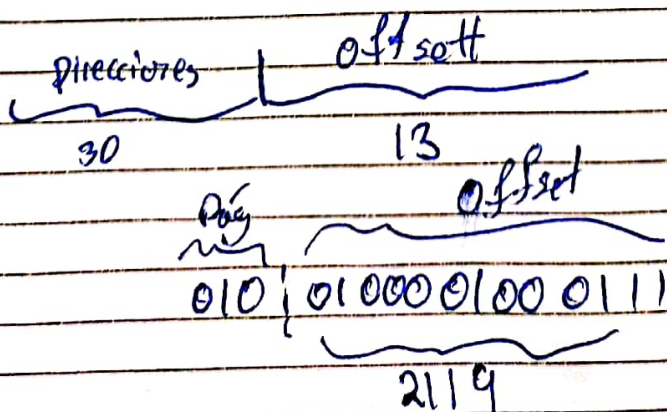 Direcciones offsett
30 13
Pág offset
010 010000100 0111
2119